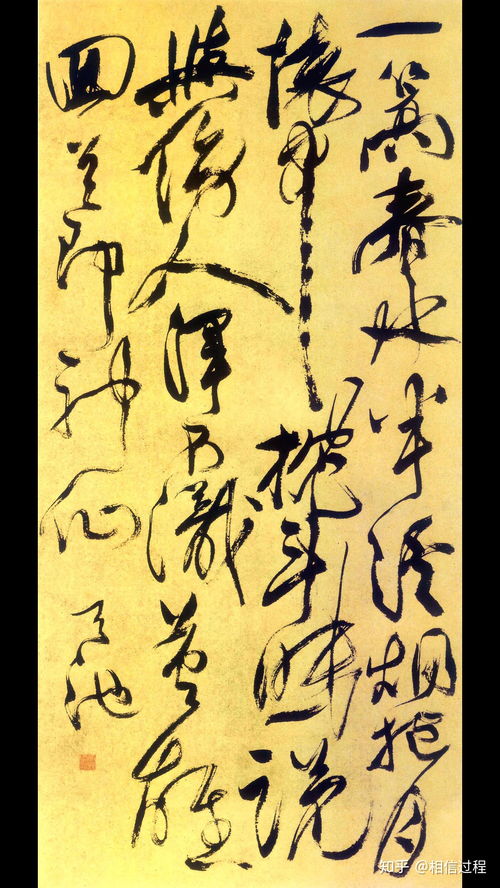 一篙春水半溪烟抱月
懷中枕斗眠説
與傍人渾不識英雄
回首即神仙 天池
知乎 @相信过程